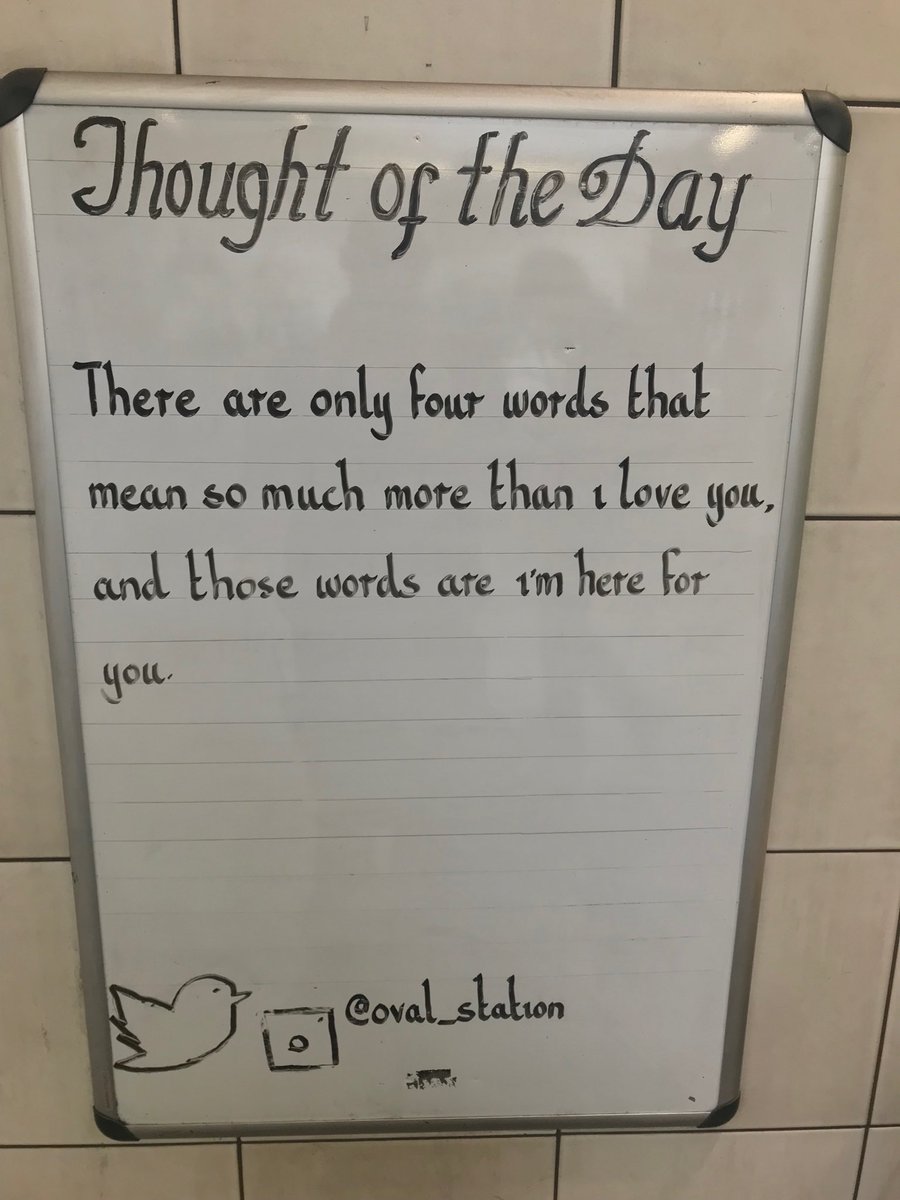 Thought of the Day
There are only four words that
mean so much more than ı love you,
and those words are ı'm here for
you.
@oval_statıon